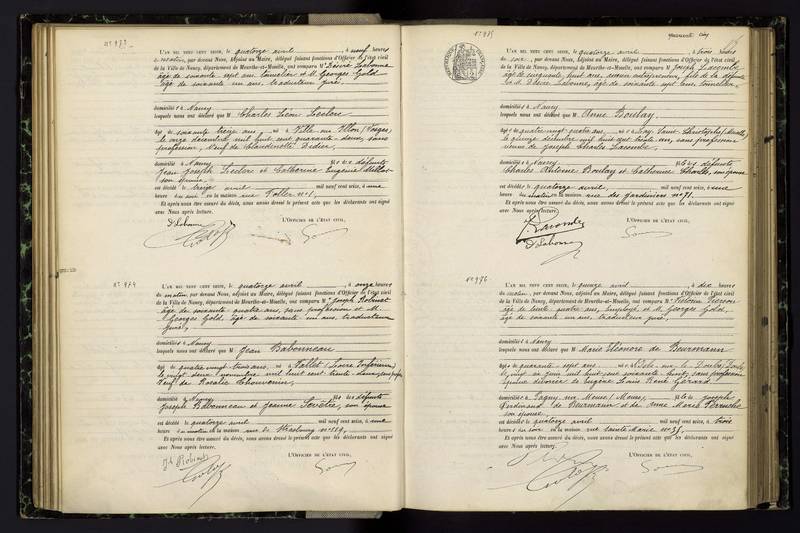 N° 973
L'AN MIL NEUF CENT SEIZE, le quatorze avril, à neuf heures
du matin, par devant Nous, Adjoint au Maire, délégué faisant fonctions d'Officier de l'état civil
de la Ville de Nancy, département de Meurthe-et-Moselle, ont comparu M. Désiré Labonne
âgé de soixante-sept ans, tonnelier et M. Georges Gold
âgé de soixante un ans, traducteur juré,
domiciliés à Nancy
lesquels nous ont déclaré que M Charles Léon Leclerc
âgé de soixante treize ans, né à Ville-sur-Illon (Vosges)
le onze décembre mil huit cent quarante-deux, sans
profession, veuf de Claudinette Didier,
domicilié à Nancy fils des défunts
Jean Joseph Leclerc et Catherine Eugénie
son épouse
est décédé le treize avril mil neuf cent seize, à une
heure du soir en la maison rue n° 1,
Et après nous être assuré du décès, nous avons dressé le présent acte que les déclarants ont signé
avec Nous après lecture.
L'OFFICIER DE L'ÉTAT CIVIL,
D. Labonne
N° 974
L'AN MIL NEUF CENT SEIZE, le quatorze avril, à onze heures
du matin, par devant Nous, Adjoint au Maire, délégué faisant fonctions d'Officier de l'état civil
de la Ville de Nancy, département de Meurthe-et-Moselle, ont comparu M. Joseph
âgé de soixante quatre ans, sans profession et M.
Georges Gold, âgé de soixante un ans, traducteur
juré,
domiciliés à Nancy
lesquels nous ont déclaré que M Jean Babonneau
âgé de quatre vingt trois ans, né à Vallet (Loire Inférieure)
le vingt deux novembre mil huit cent trente-deux,
veuf de Rosalie Thouvenin,
domicilié à Nancy fils des défunts
Joseph Babonneau et Jeanne son épouse
est décédé le quatorze avril mil neuf cent seize, à une
heure du matin en la maison rue de Strasbourg n°
Et après nous être assuré du décès, nous avons dressé le présent acte que les déclarants ont signé
avec Nous après lecture.
L'OFFICIER DE L'ÉTAT CIVIL,
quarante cinq
N° 975
L'AN MIL NEUF CENT SEIZE, le quatorze avril, à trois heures
du soir, par devant Nous, Adjoint au Maire, délégué faisant fonctions d'Officier de l'état civil
de la Ville de Nancy, département de Meurthe-et-Moselle, ont comparu M. Joseph Lacombe
âgé de cinquante huit ans, entrepreneur, fils de la défunte
et M. Désiré Labonne, âgé de soixante sept ans, tonnelier
domiciliés à Nancy
lesquels nous ont déclaré que M Anne Boulay
âgée de quatre vingt quatre ans, née à Lay-Saint-Christophe (Meurthe)
le quinze décembre mil huit cent trente un, sans profession
veuve de Joseph Charles Lacombe
domiciliée à Nancy fille des défunts
Charles Antoine Boulay et Catherine Charles, son épouse
est décédée le quatorze avril mil neuf cent seize, à une
heure du matin en la maison rue des Jardiniers n° 71.
Et après nous être assuré du décès, nous avons dressé le présent acte que les déclarants ont signé
avec Nous après lecture.
L'OFFICIER DE L'ÉTAT CIVIL,
J. Lacombe
D. Labonne
N° 976
L'AN MIL NEUF CENT SEIZE, le quinze avril, à dix heures
du matin, par devant Nous, Adjoint au Maire, délégué faisant fonctions d'Officier de l'état civil
de la Ville de Nancy, département de Meurthe-et-Moselle, ont comparu M. Victorin
âgé de trente quatre ans, employé et M. Georges Gold,
âgé de soixante un ans, traducteur juré,
domiciliés à Nancy
lesquels nous ont déclaré que M Marie Eléonore de Beurmann
âgée de quarante sept ans, née à l'Isle-sur-le-Doubs (Doubs)
le vingt six juin mil huit cent soixante-huit, sans profession
épouse divorcée de Eugène Louis René Gérard
domiciliée à Pagny-sur-Meuse (Meuse) fille de Joseph
Ferdinand de Beurmann et de Anne Marie
son épouse
est décédée le quatorze avril mil neuf cent seize, à trois
heures du soir en la maison rue Sainte Marie n° 35.
Et après nous être assuré du décès, nous avons dressé le présent acte que les déclarants ont signé
avec Nous après lecture.
L'OFFICIER DE L'ÉTAT CIVIL,